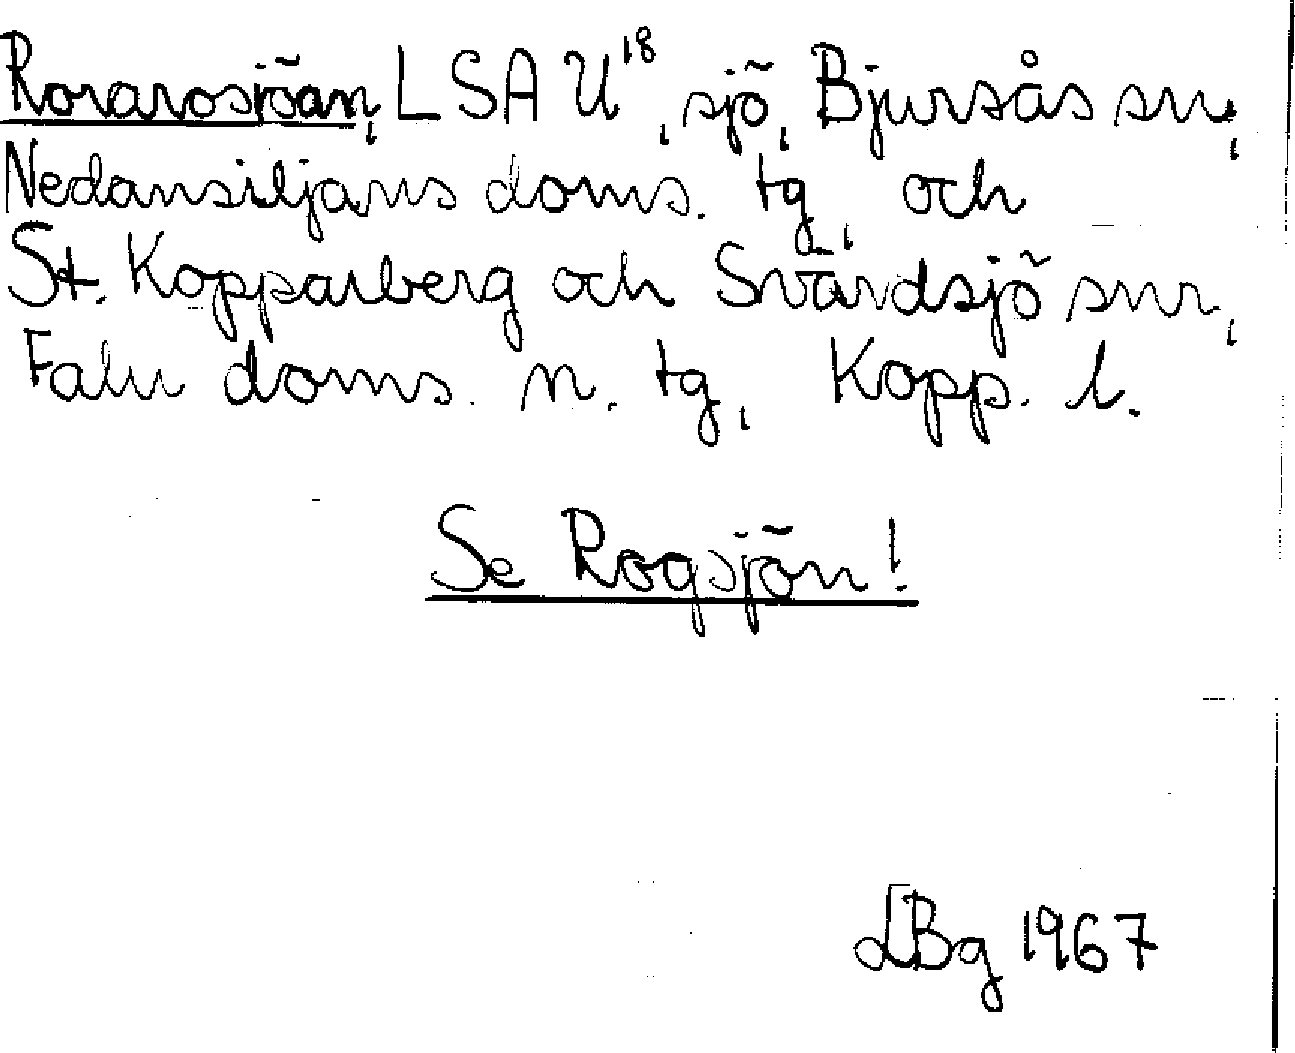 Rorarosjöan, LSA U¹⁸, sjö, Bjursås sn,
Nedansiljans doms. tg, och
St. Kopparberg och Svärdsjö snr,
Falu doms. n. tg, Kopp. l.
Se Rogsjön!
LBg 1967